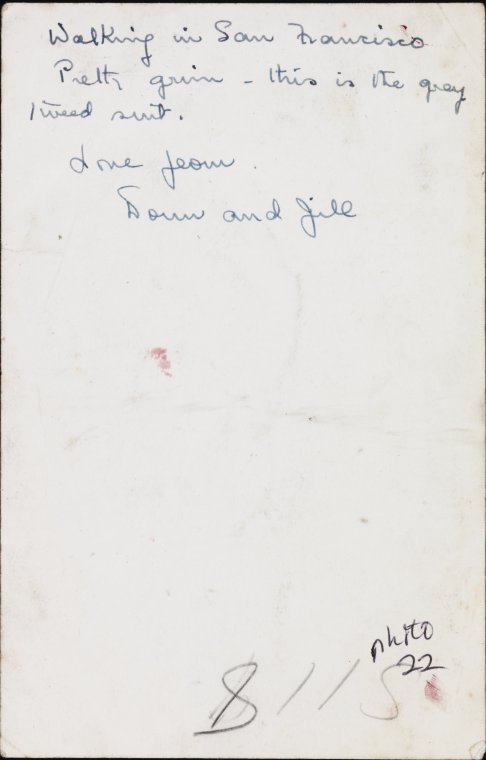 Walking in San Francisco
Pretty grim - this is the grey
tweed suit.
Love Jean.
Donn and Jill
photo
22
8115